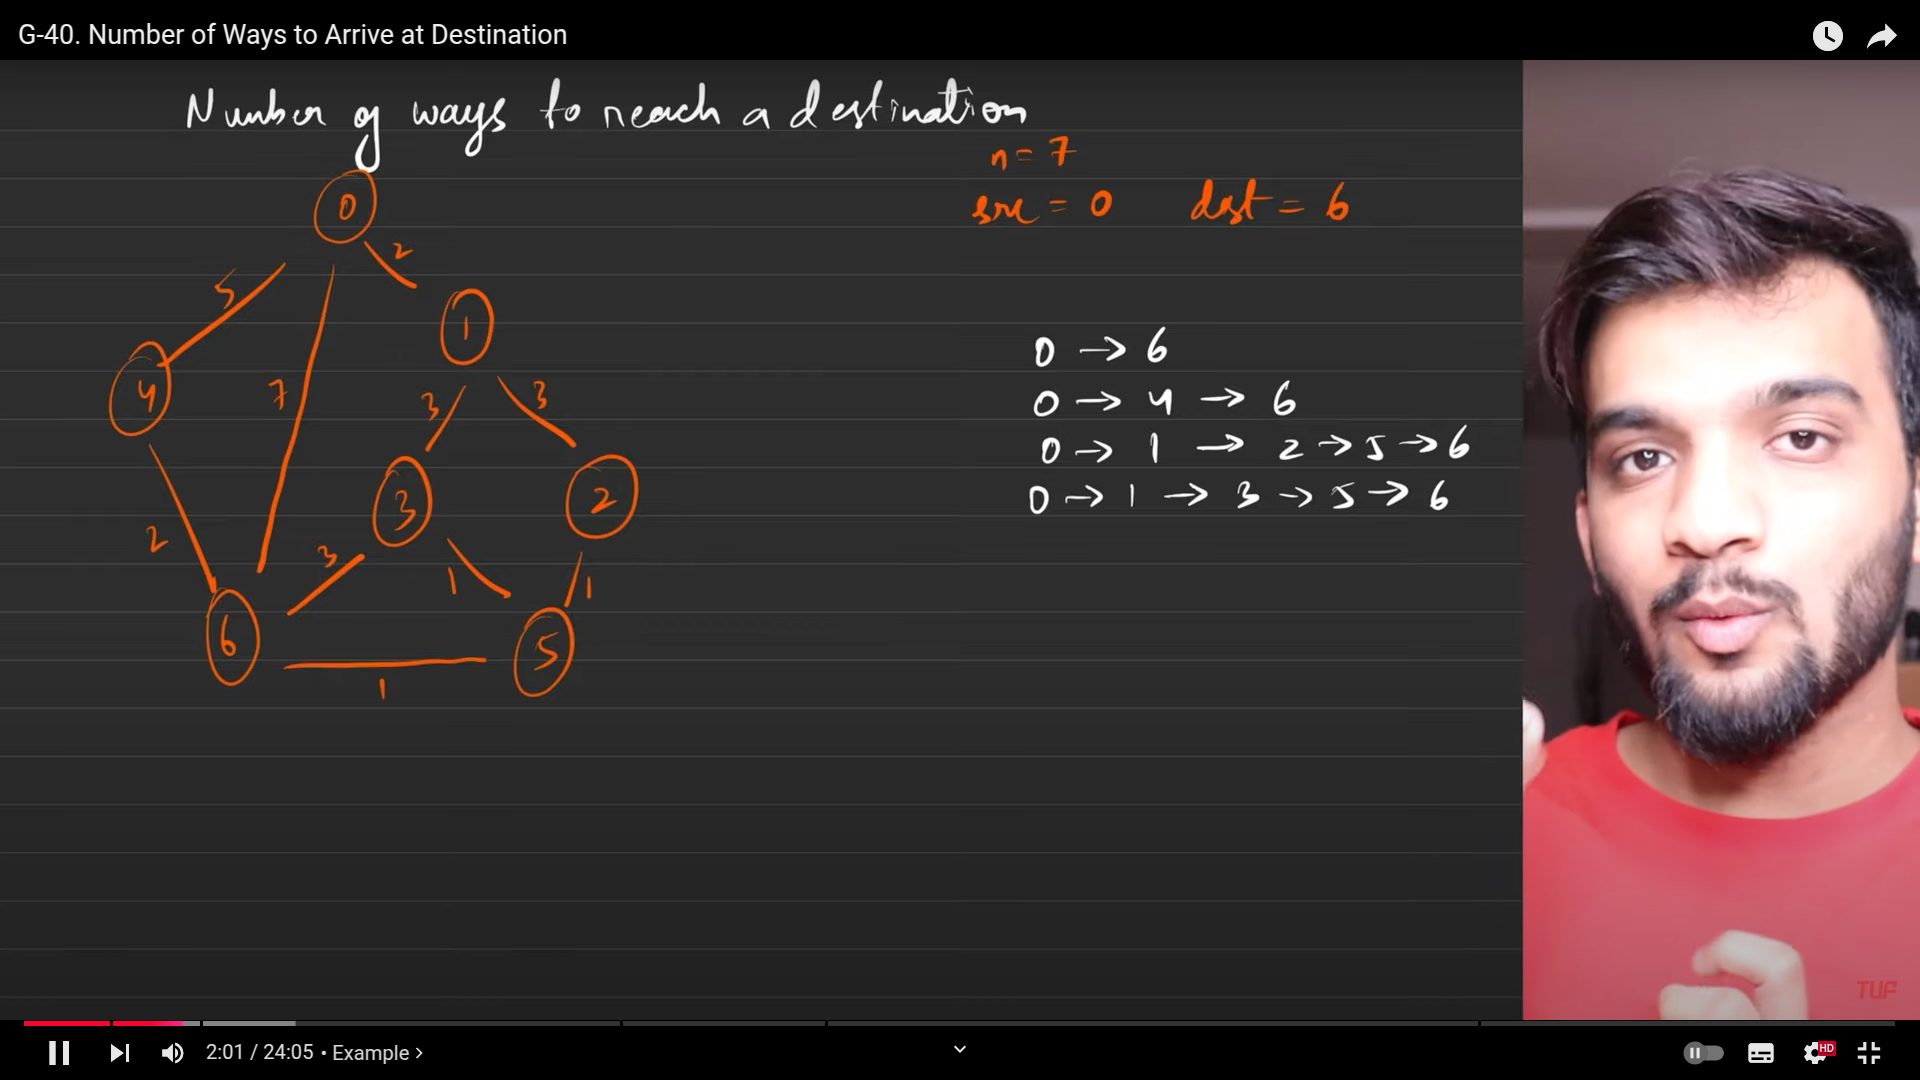 G-40. Number of Ways to Arrive at Destination
Number of ways to reach a destination
n = 7
src = 0 dest = 6
0
2
5
1
4
7
3
3
0 → 6
0 → 4 → 6
0 → 1 → 2 → 5 → 6
0 → 1 → 3 → 5 → 6
3
2
2
3
1
1
6
5
1
TUF
2:01 / 24:05 • Example >
HD